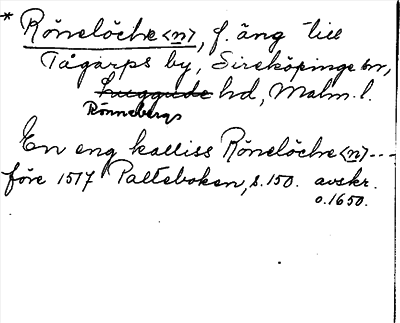 * Rönelöche <n>, f. äng till
Tågarps by, Sireköpinge sn,
Luggude hd, Malm. l.
Rönnebergs
En eng kalliss Rönelöche <n> ---
före 1517 Palteboken, s. 150. avskr.
o. 1650.